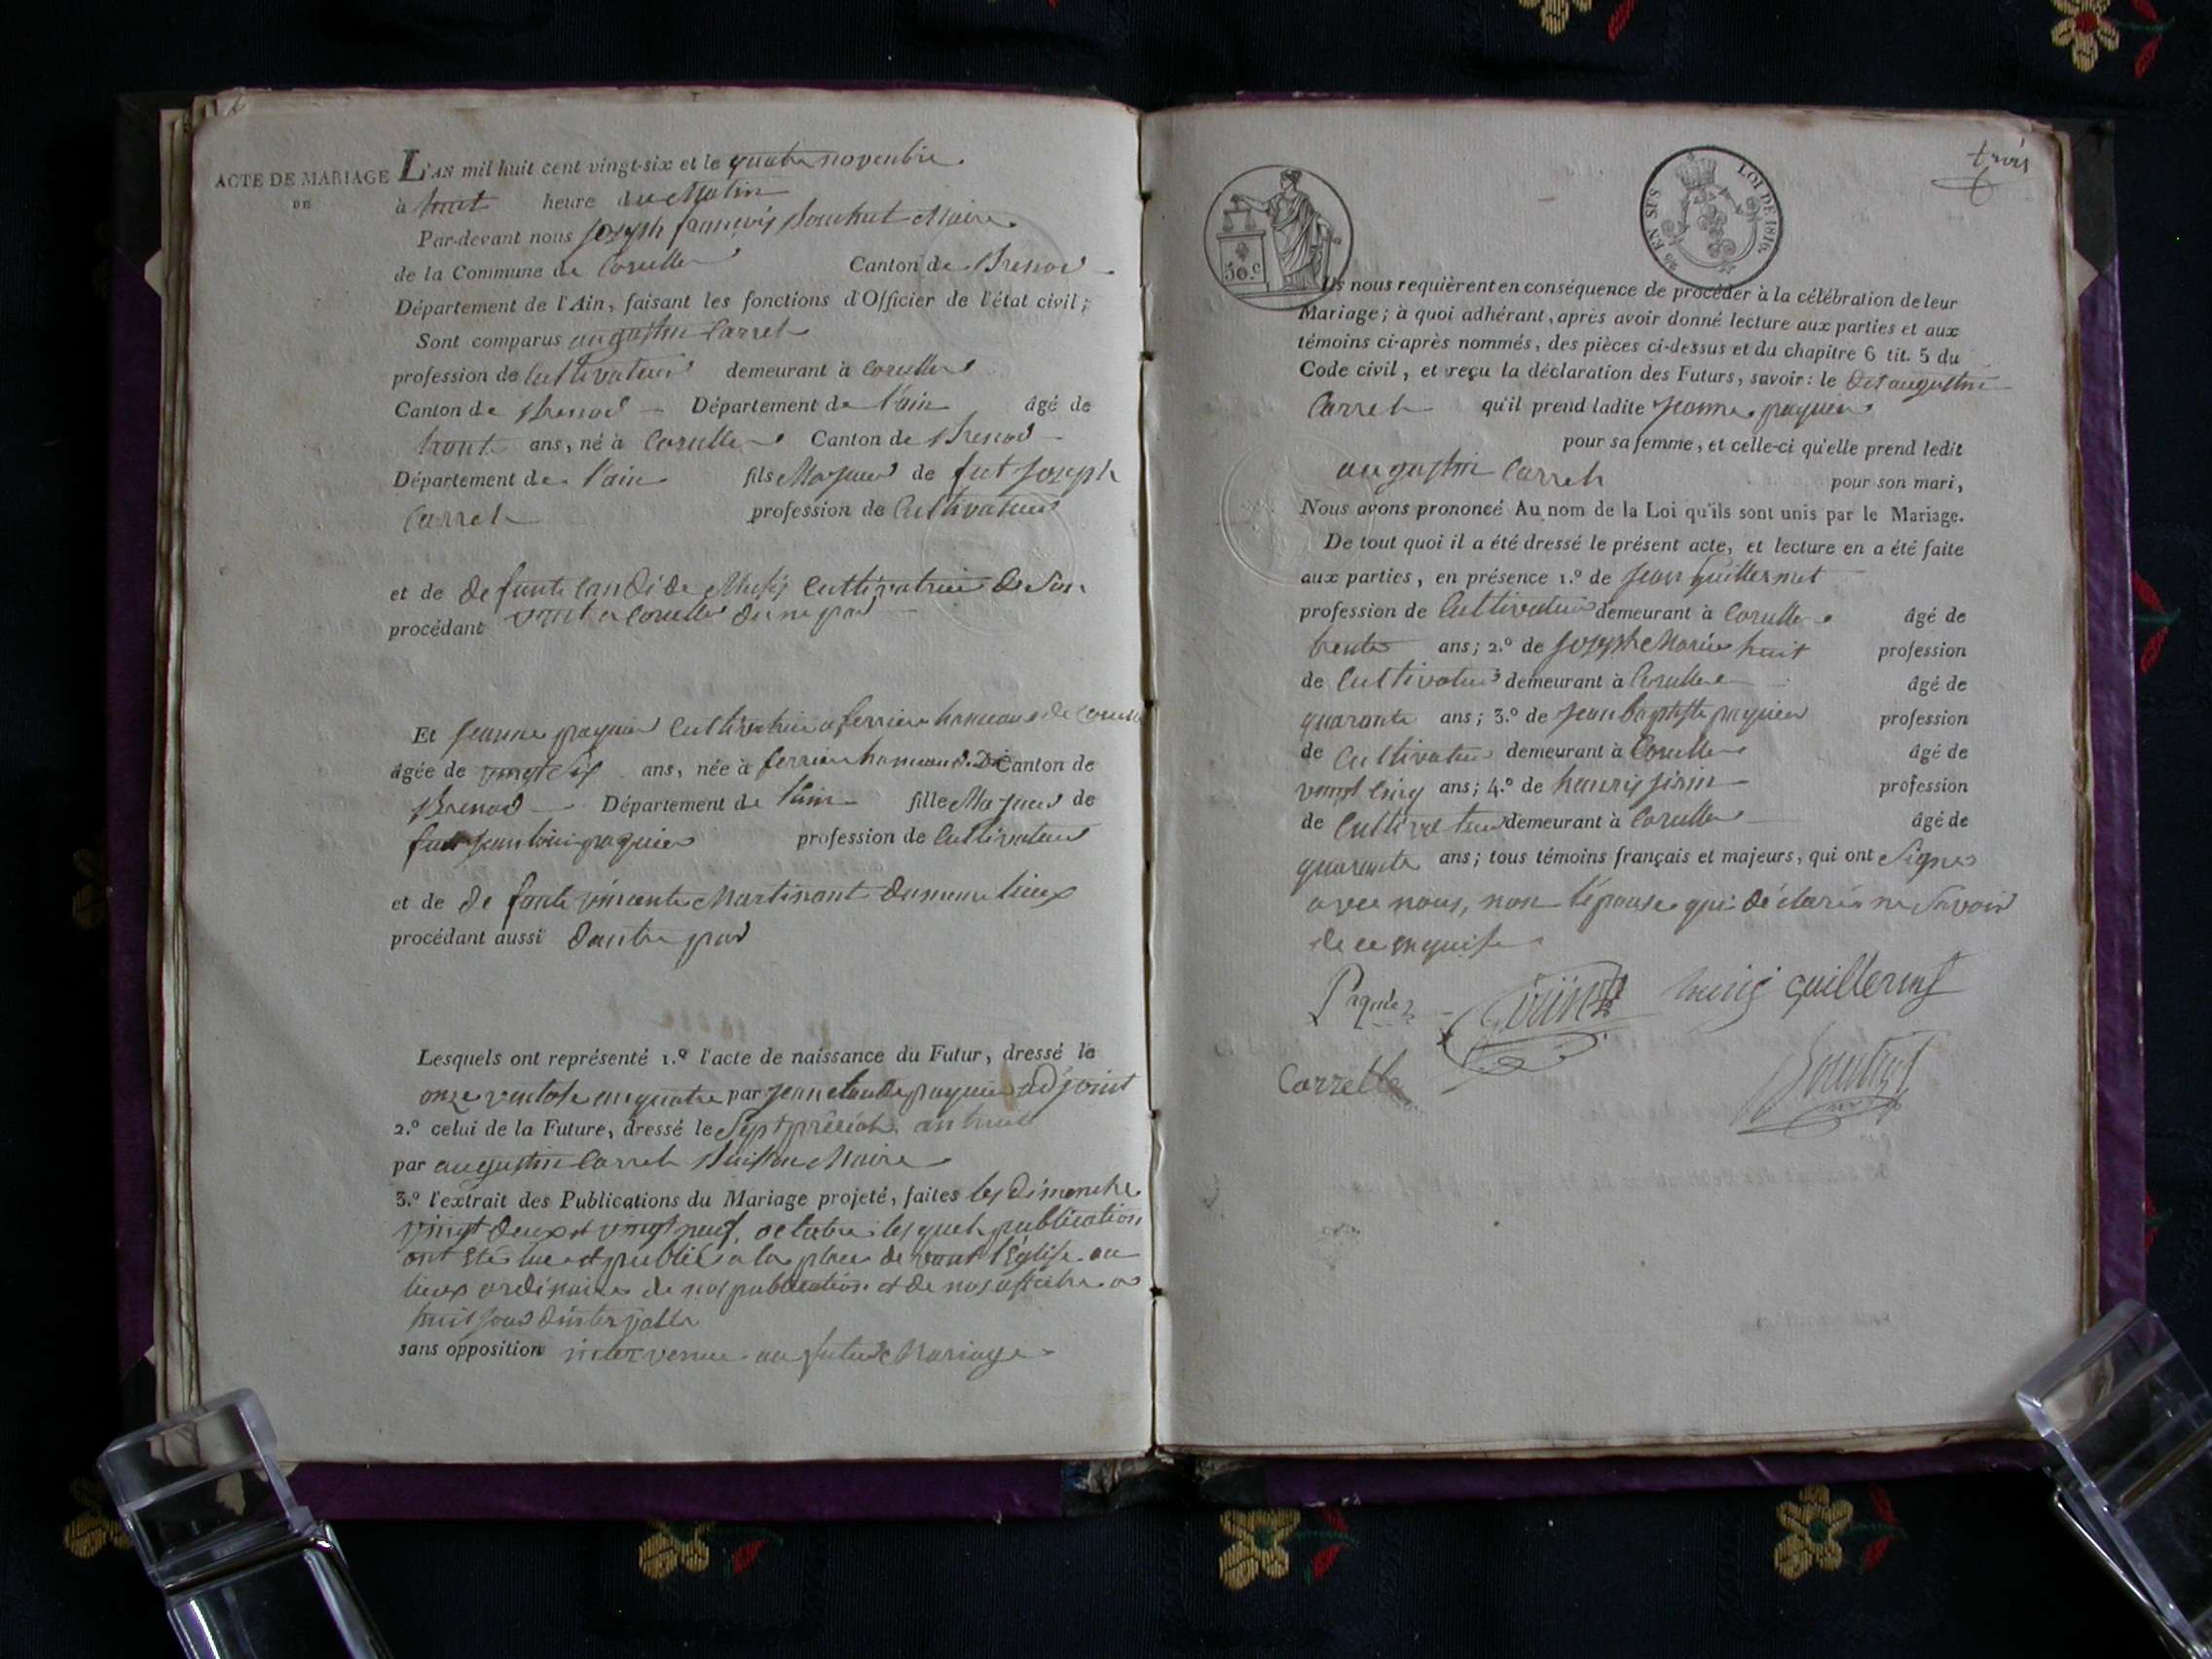 ACTE DE MARIAGE
DE
L'AN mil huit cent vingt-six et le quatre novembre
à huit heure du Matin
Par-devant nous joseph françois Southut Maire
de la Commune de Corcelle Canton de Brenod
Département de l'Ain, faisant les fonctions d'Officier de l'état civil;
Sont comparus augustin Carrel
profession de Cultivateur demeurant à Corcelle
Canton de Brenod Département de l'ain âgé de
trente ans, né à Corcelle Canton de Brenod
Département de l'ain fils Majeur de fut joseph
Carrel profession de Cultivateur
et de defunte Candide Cultivatrice de Son
procédant vivant a Corcelle d'une part
Et jeanne paquier Cultivatrice a ferriere hameaux de Corcelle
âgée de vingt Six ans, née à ferriere hameaux. De Canton de
Brenod Département de l'ain fille Majeur de
fut jean louis paquier profession de Cultivateur
et de de funte vincente Martinant du meme lieux
procédant aussi d'autre part
Lesquels ont représenté 1.º l'acte de naissance du Futur, dressé le
onze ventose en quatre par jean claude paquier adjoint
2.º celui de la Future, dressé le Sept an huit
par augustin Carrel Maire
3.º l'extrait des Publications du Mariage projeté, faites les dimanche
vingt deux et vingt neuf, octobre les quels publication
ont été lue et publié a la place devant l'église au
lieux ordinaire de nos publication et de nos affiche a
huit jour d'intervalle
sans opposition intervenue au futur Mariage
trois
50.c
25 EN SUS LOI DE 1816
Ils nous requièrent en conséquence de procéder à la célébration de leur
Mariage; à quoi adhérant, après avoir donné lecture aux parties et aux
témoins ci-après nommés, des pièces ci-dessus et du chapitre 6 tit. 5 du
Code civil, et reçu la déclaration des Futurs, savoir: le dit augustin
Carrel qu'il prend ladite jeanne paquier
pour sa femme, et celle-ci qu'elle prend ledit
augustin Carrel pour son mari,
Nous avons prononcé Au nom de la Loi qu'ils sont unis par le Mariage.
De tout quoi il a été dressé le présent acte, et lecture en a été faite
aux parties, en présence 1.º de jean guillermet
profession de Cultivateur demeurant à Corcelle âgé de
trente ans; 2.º de joseph Marie huit profession
de Cultivateur demeurant à Corcelle âgé de
quarante ans; 3.º de jean baptiste paquier profession
de Cultivateur demeurant à Corcelle âgé de
vingt cinq ans; 4.º de profession
de Cultivateur demeurant à Corcelle âgé de
quarante ans; tous témoins français et majeurs, qui ont Signés
avec nous, non l'épouse qui a déclaré ne Savoir
de ce enquise
Paquier guillermet
Carrelle